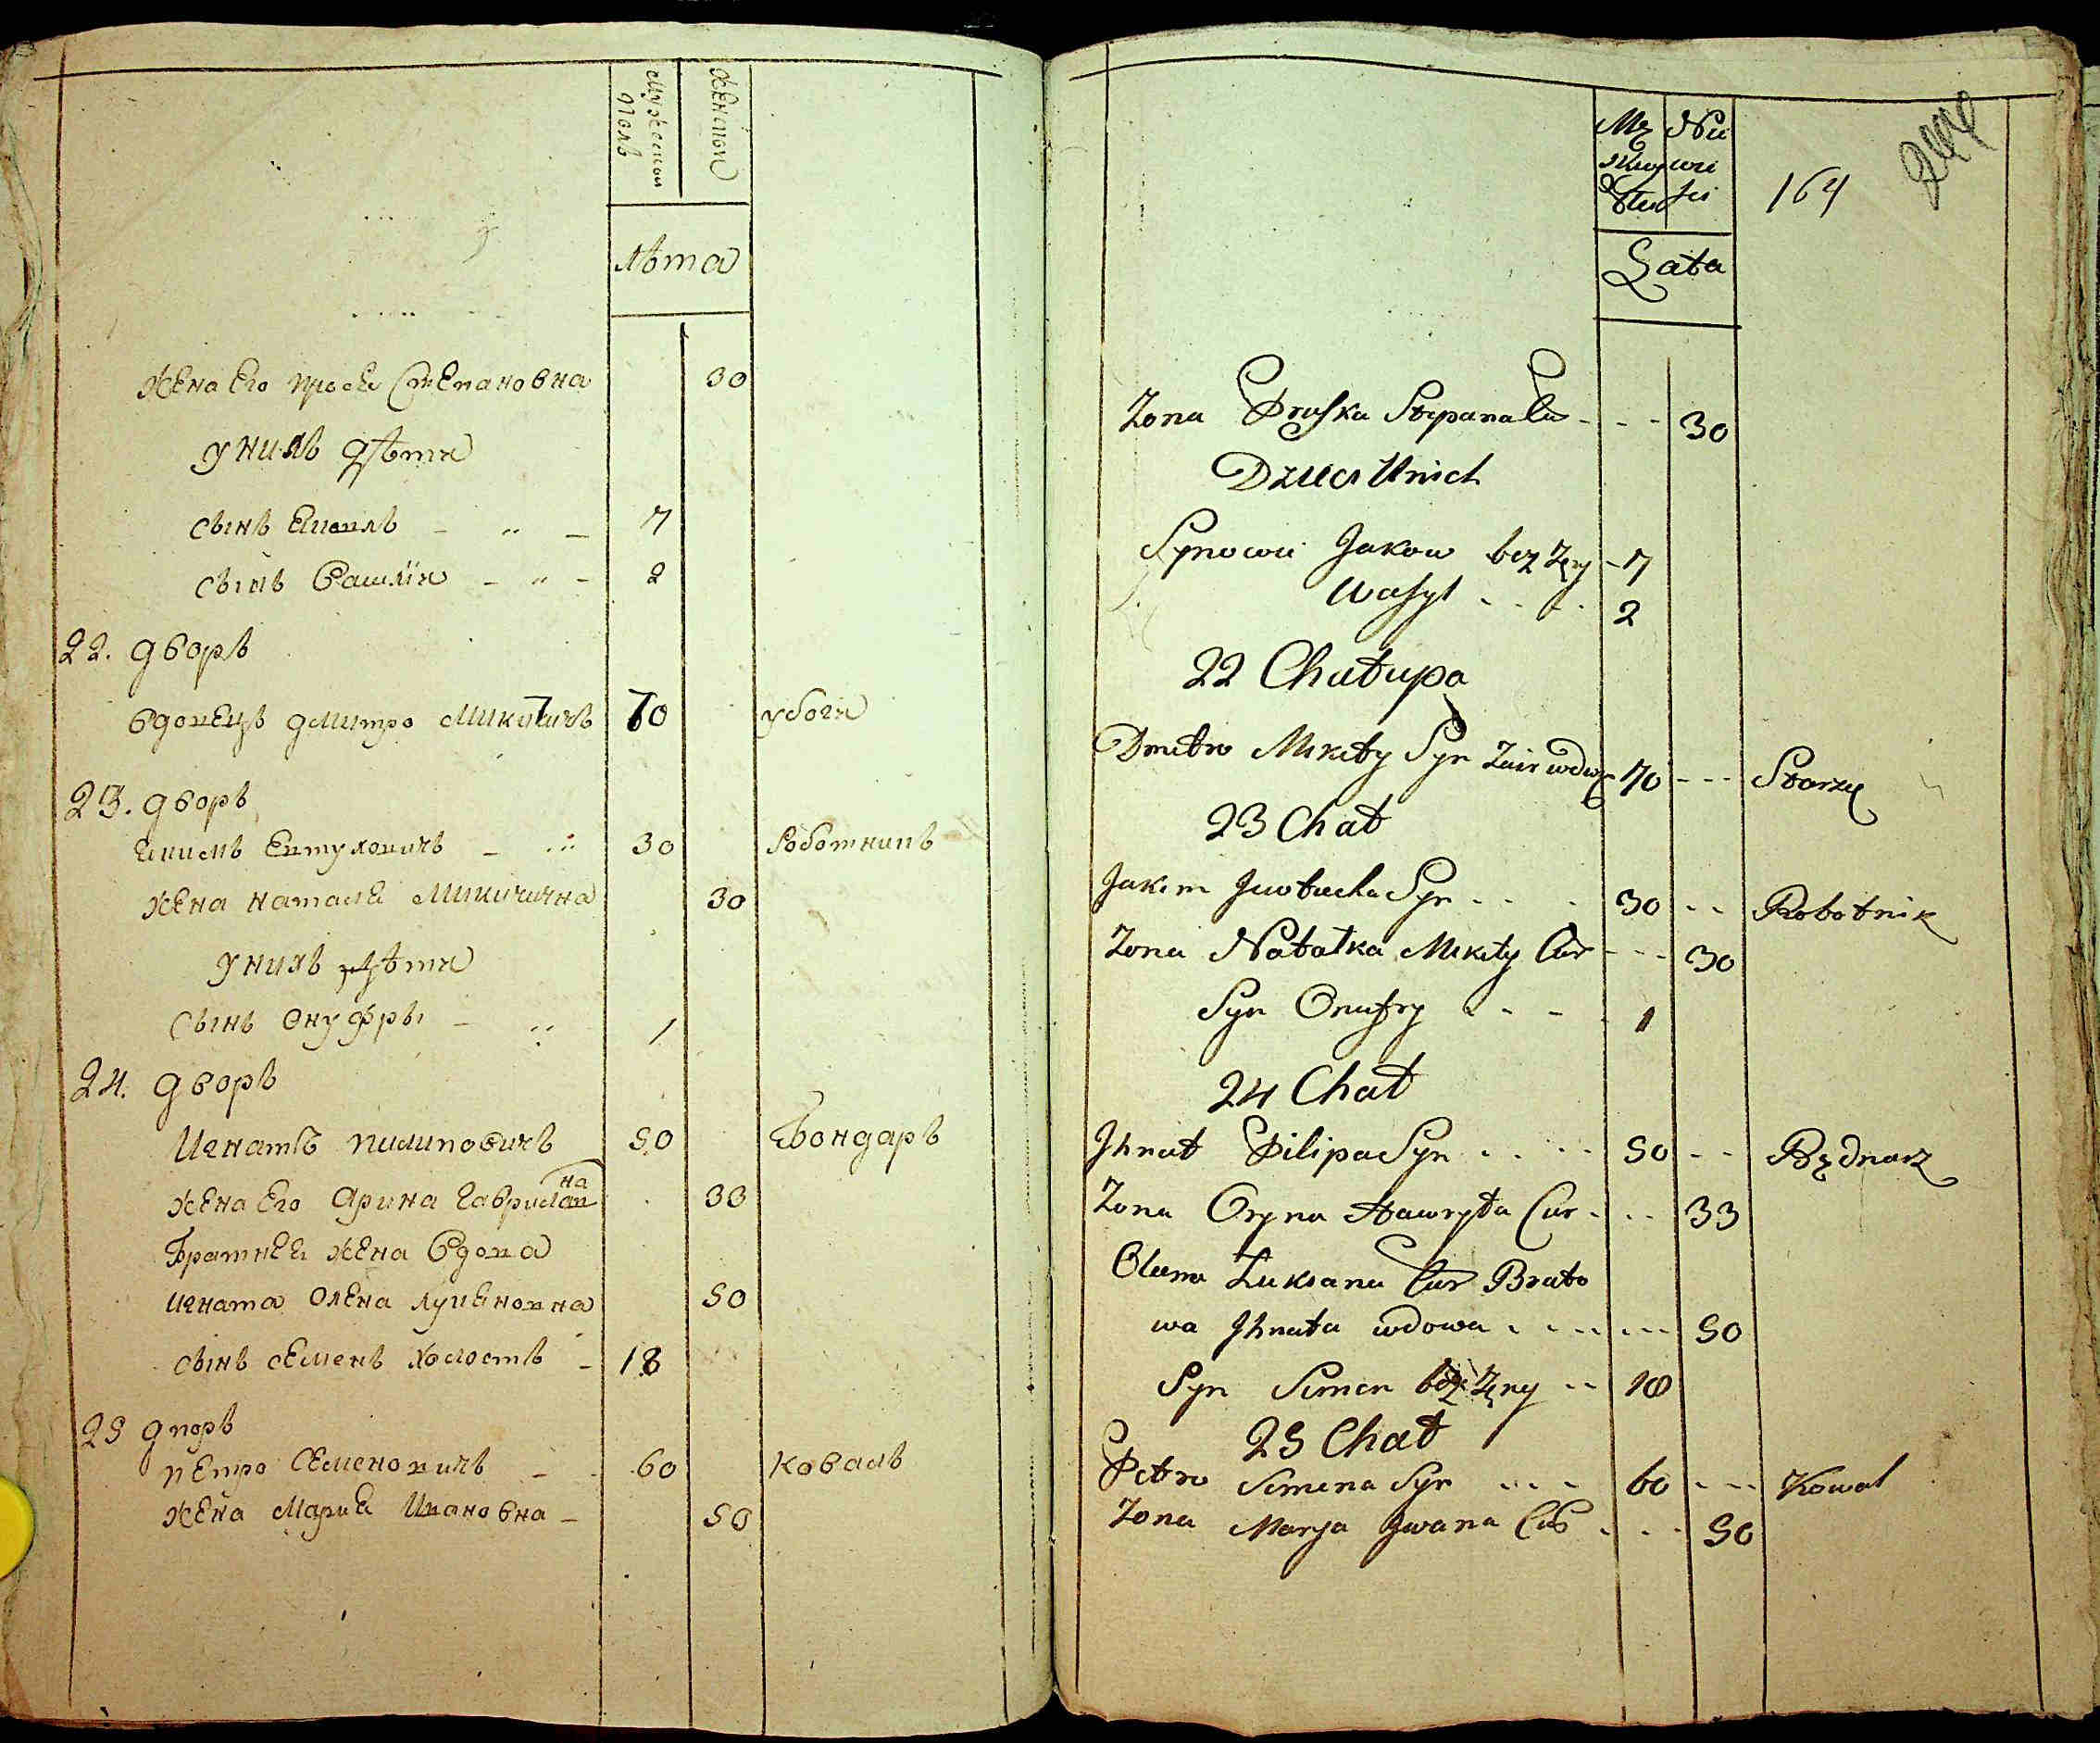 Мужеска Полъ
Женска
лѣта
жена его просҍ Степановна 30
у нихъ дѣти
сынъ Якивъ - " - 7
сынъ Василій - " - 2
22. дворъ
вдовецъ дмитро Микитичъ 70 убоги
23. дворъ
Якимъ Евтуховичъ - 30 Роботникъ
жена наталѣ Микитична 30
у нихъ дѣти
сынъ Онуфры - 1
24. дворъ
Игнатъ пилиповичъ 50 Бондаръ
жена его Орина Гаврилована 33
Братнеи жена вдова
игната Олена лукянована 50
сынъ Семенъ холостъ - 18
25 дворъ
петро Семеновичъ - 60 Коваль
жена Мария Ивановна - 50
Mę Nie
skiey wie
Płci ści
164
Lata
Zona Pruska Stepana Cur - - - 30
Dzieci Unich
Synowie Jakow bez Żęny - 7
Wasyl . . . . 2
22 Chałupa
Dmitro Mikity Syn Żuir wdwę 70 - - - Starzec
23 Chat
Jakim Jwtucha Syn . . . 30 - - Robotnik
Zona Natalka Mikity Cur - - - 30
Syn Onufry . - - . 1
24 Chat
Jhnat Pilipa Syn . . . . 50 - - Będnarz
Zona Oryna Hawryła Cur . . . 33
Olena Łukiana Cur Brato
wa Jhnata wdowa . . . . . . . 50
Syn Semen bez Żęny - - 18
25 Chat
Petro Semena Syn . . . - 60 - - - Kowal
Zona Marya Jwana Cur . . . 50